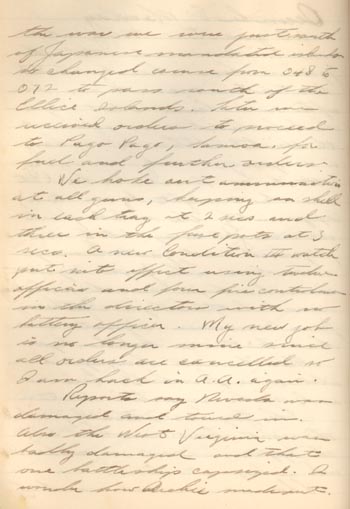 the war we were just north
of Japanese mandated islands
so changed course from 248 to
072 to pass south of the
Ellice Islands. Later we
received orders to proceed
to Pago Pago, Samoa, for
fuel and further orders.
We broke out ammunition
at all guns, keeping one shell
in each tray at 2 secs and
three in the fuse pots at 3
secs. A new Condition to watch
put into effect using twelve
officers and four fire controlmen
in the directors with no
battery officer. My new job
is no longer mine since
all orders are cancelled so
I am back in A.A. again.
Reports say Nevada was
damaged and towed in.
Also the West Virginia was
badly damaged and that
one battleship capsized. I
wonder how Archie made out.